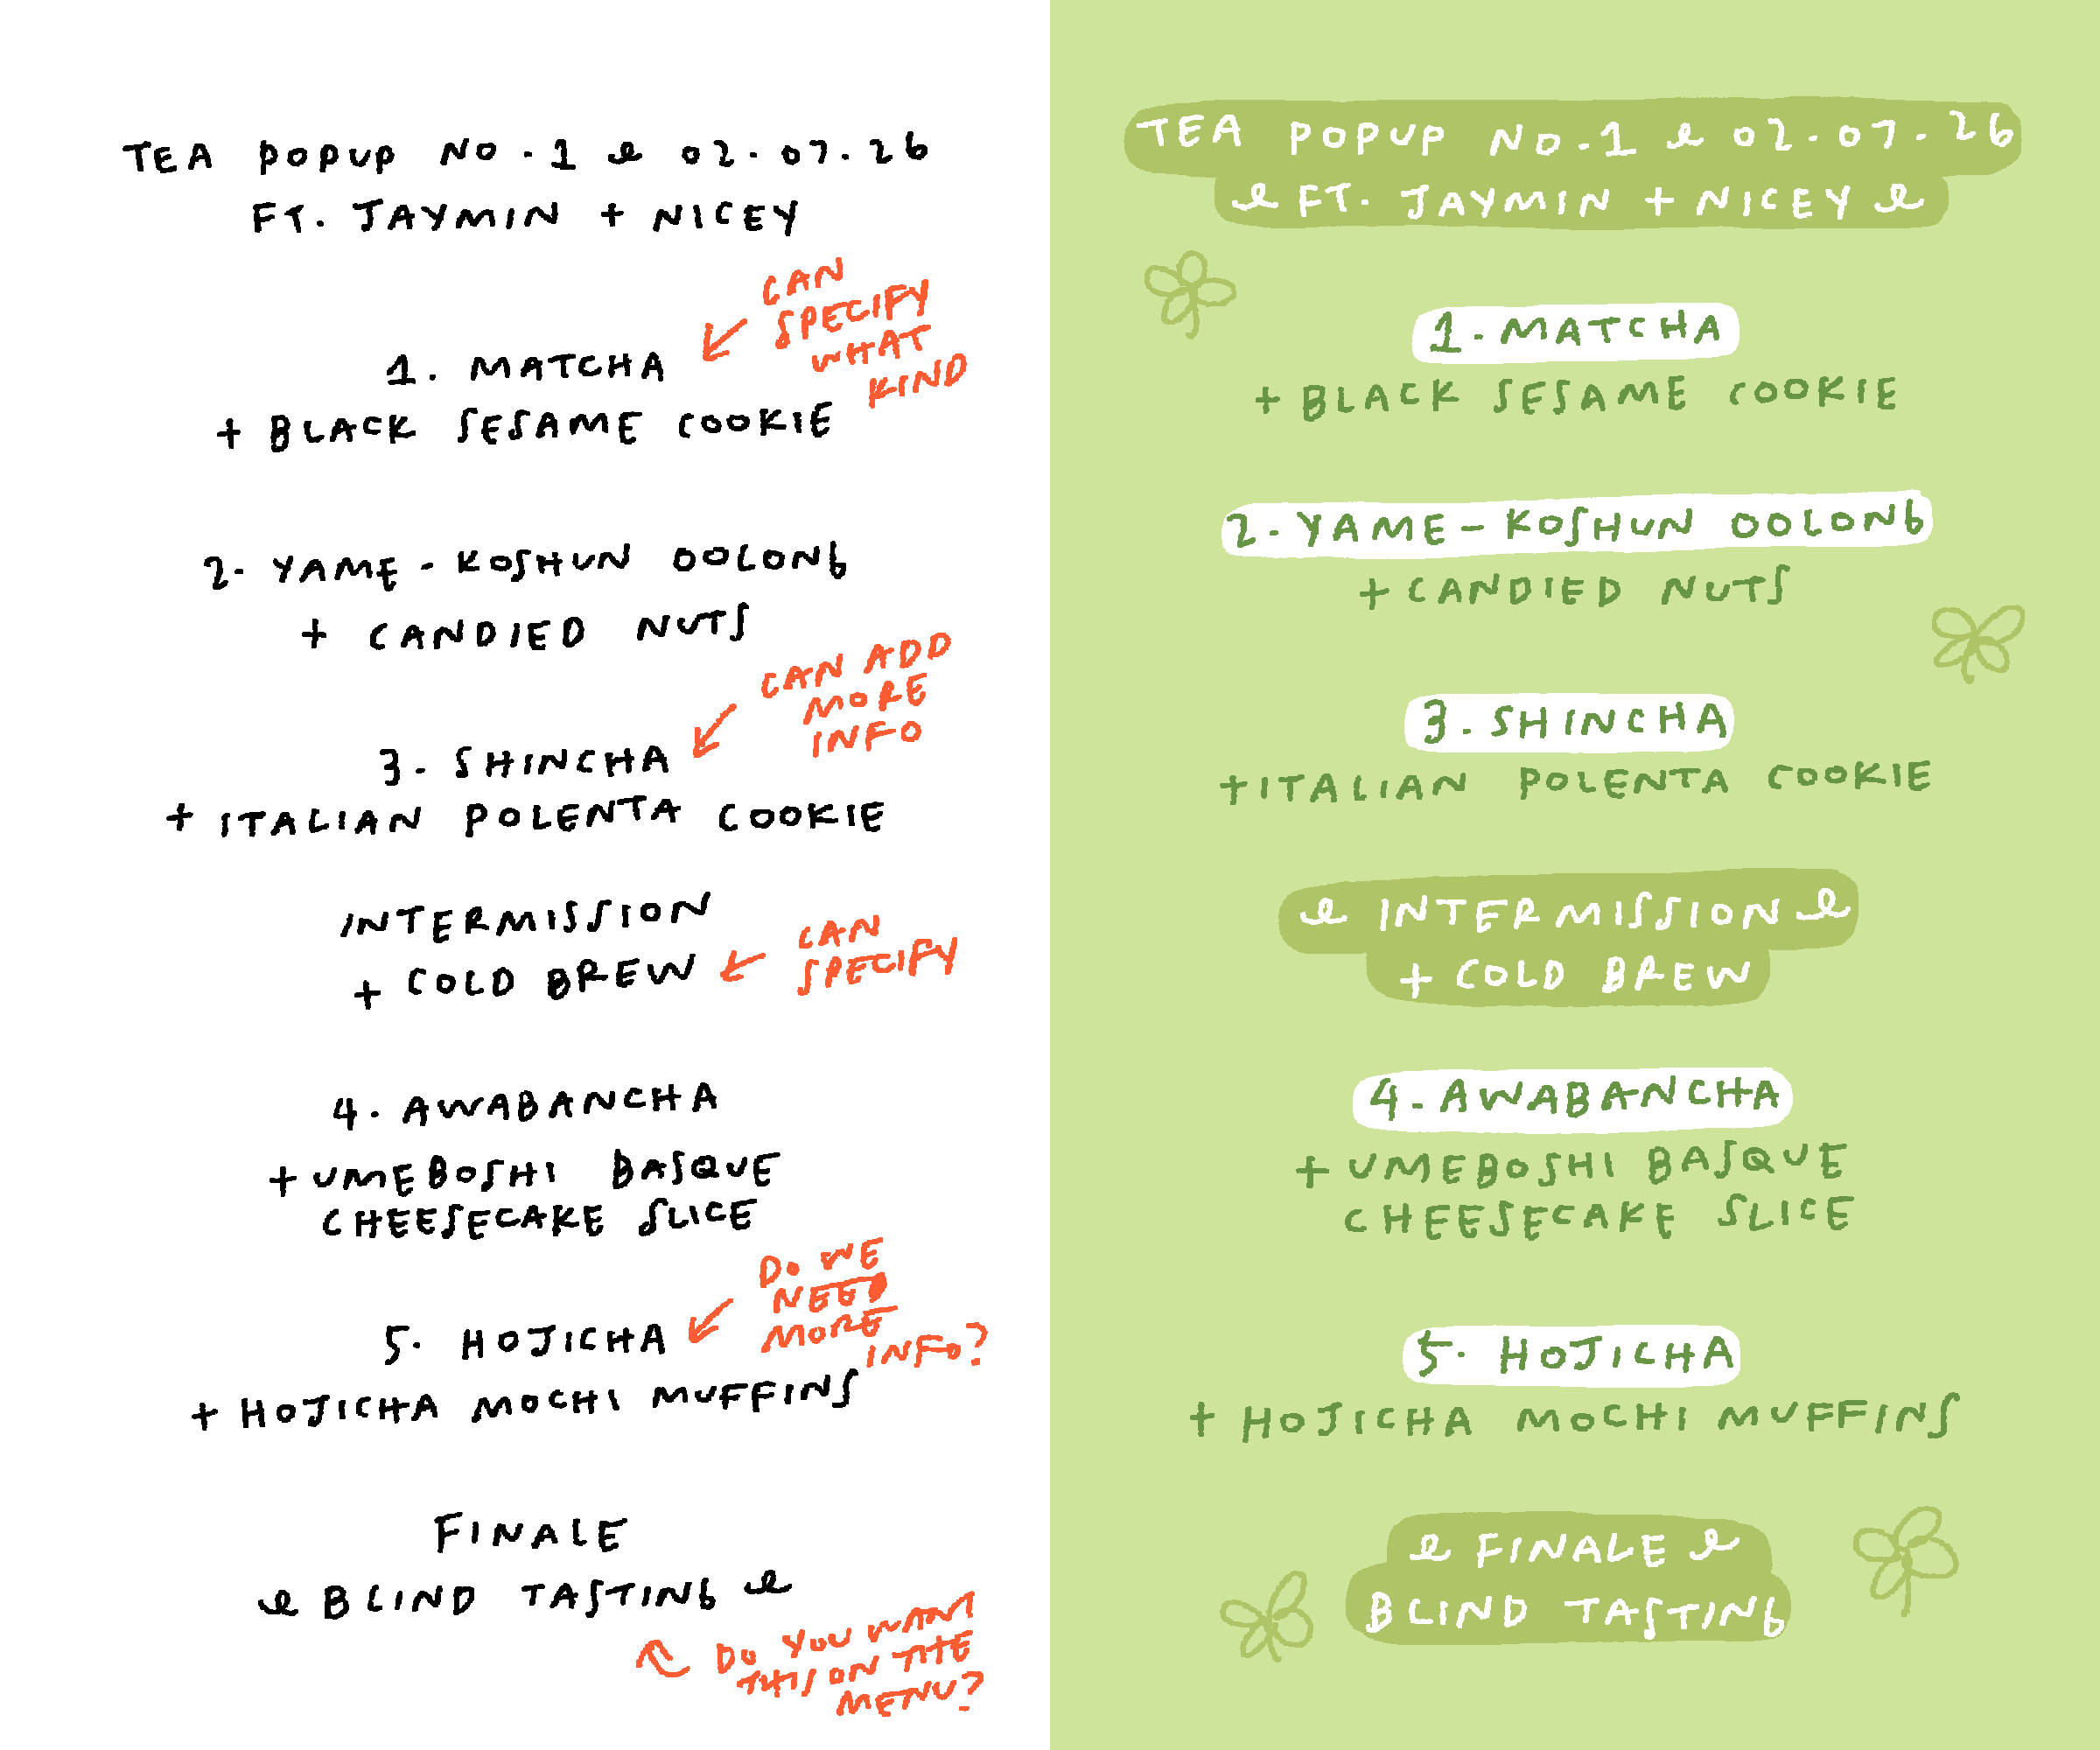 TEA POPUP NO.1 e 02.07.26
FT. JAYMIN + NICEY
CAN
SPECIFY
WHAT
KIND
1. MATCHA
+ BLACK SESAME COOKIE
2. YAME-KOSHUN OOLONG
+ CANDIED NUTS
CAN ADD
MORE
INFO
3. SHINCHA
+ ITALIAN POLENTA COOKIE
INTERMISSION
+ COLD BREW
CAN
SPECIFY
4. AWABANCHA
+ UMEBOSHI BASQUE
CHEESECAKE SLICE
DO WE
NEED
MORE
INFO?
5. HOJICHA
+ HOJICHA MOCHI MUFFINS
FINALE
e BLIND TASTING e
DO YOU WANT
THIS ON THE
MENU?
TEA POPUP NO.1 e 02.07.26
e FT. JAYMIN + NICEY e
1. MATCHA
+ BLACK SESAME COOKIE
2. YAME-KOSHUN OOLONG
+ CANDIED NUTS
3. SHINCHA
+ ITALIAN POLENTA COOKIE
e INTERMISSION e
+ COLD BREW
4. AWABANCHA
+ UMEBOSHI BASQUE
CHEESECAKE SLICE
5. HOJICHA
+ HOJICHA MOCHI MUFFINS
e FINALE e
BLIND TASTING